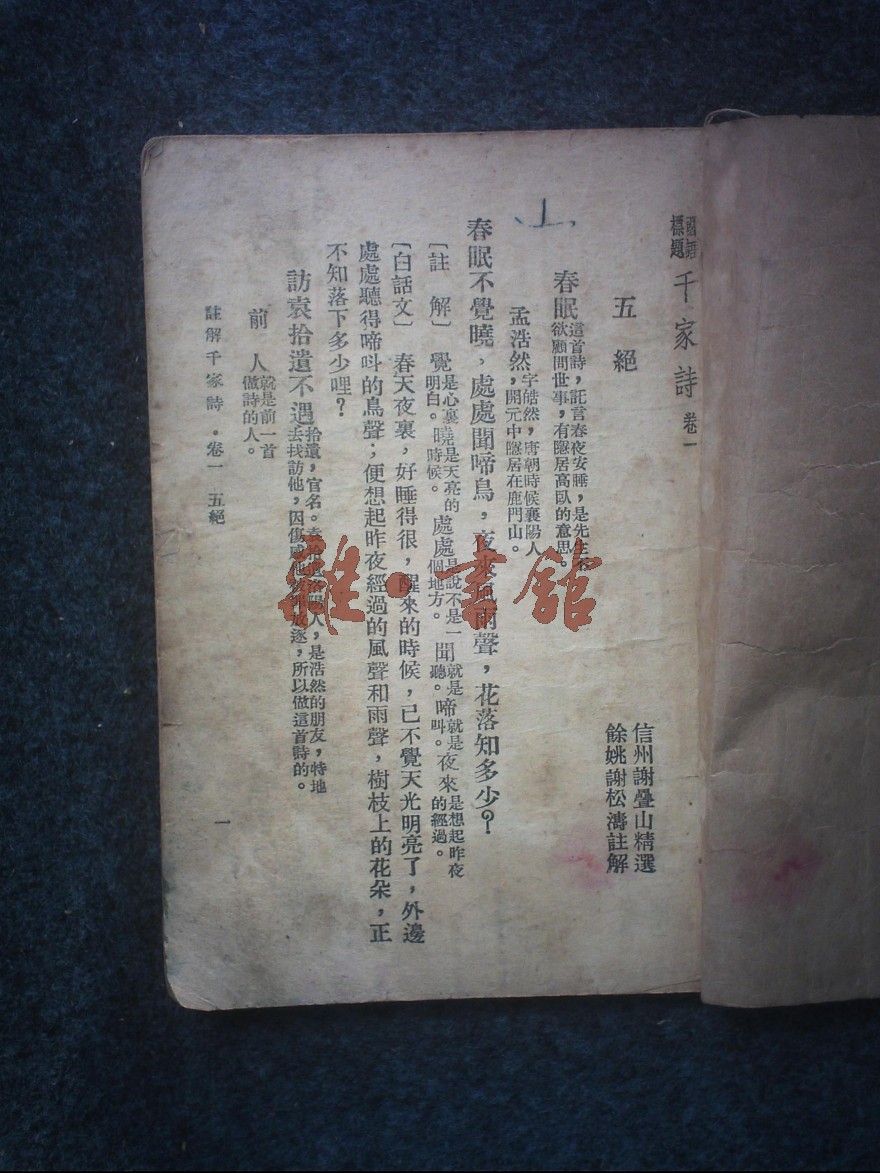 國語標題 千家詩 卷一
信州謝疊山精選
餘姚謝松濤註解
五絕
春眠 這首詩,託言春夜安睡,是先生不欲顧問世事,有隱居高臥的意思。
孟浩然 字皓然,唐朝時候襄陽人,開元中隱居在鹿門山。
春眠不覺曉,處處聞啼鳥,夜來風雨聲,花落知多少?
〔註 解〕 覺 是心裏明白。 曉 是天亮的時候。 處處 是說不是一個地方。 聞 就是聽。 啼 就是叫。 夜來 是想起昨夜的經過。
〔白話文〕 春天夜裏,好睡得很,醒來的時候,已不覺天光明亮了,外邊
處處聽得啼呌的鳥聲;便想起昨夜經過的風聲和雨聲,樹枝上的花朵,正
不知落下多少哩?
訪袁拾遺不遇 拾遺,官名。袁拾遺洛陽人,是浩然的朋友,特地去找訪他,因傷感他放逐,所以做這首詩的。
前人 就是前一首做詩的人。
註解千家詩・卷一 五絕
一
雜・書館